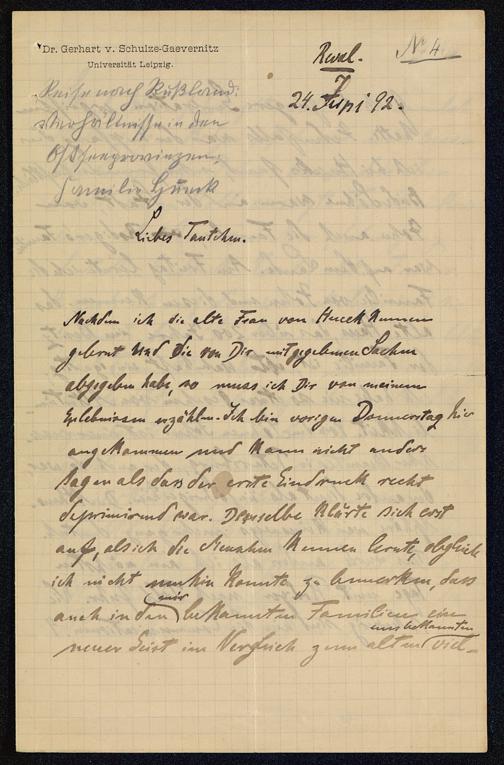 Dr. Gerhart v. Schulze-Gaevernitz
Universität Leipzig.
No 4
Reval.
24. Juni 92.
Reise nach Rußland:
Verhältnisse in den
Ostseeprovinzen;
Familie Hueck
Liebes Tantchen.
Nachdem ich die alte Frau von Hueck kennen
gelernt und die von Dir mitgegebenen Sachen
abgegeben habe, so muss ich Dir von meinen
Erlebnissen erzählen. Ich bin vorigen Donnerstag hier
angekommen und kann nicht anders
sagen als dass der erste Eindruck recht
deprimirend war. Derselbe klärte sich erst
auf, als ich die Menschen kennen lernte, obgleich
ich nicht umhin konnte zu bemerken, dass
auch in den mir bekannten Familien ein
neuer Geist im Vergleich zum alten uns bekannten viel-